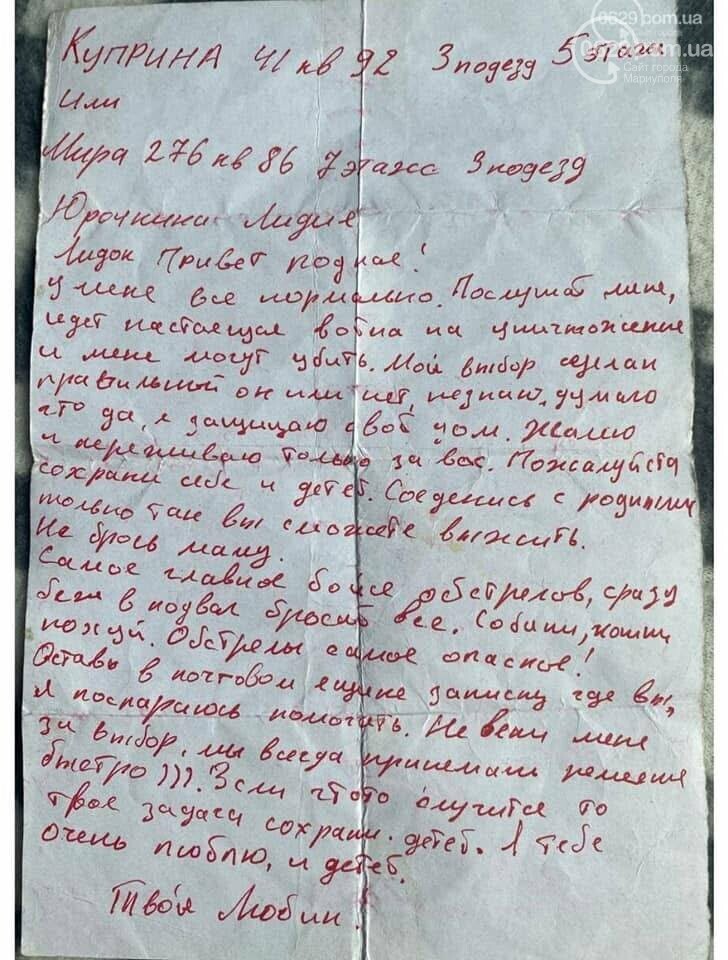 0629.com.ua
Сайт города
Мариуполя
Куприна 41 кв 92 3 подезд 5 этаж
или
Мира 276 кв 86 7 этажс 3 подезд
Юрочкина Лидия
Лидок Привет родная!
У мене все нормально. Послушай мене,
идет настаещае война на уничтожение
и мене могут убить. Мой выбор сделан
правильный он или нет, незнаю, думаю
что да, я защищаю свой дом. Жалею
и переживаю только за вас. Пожалуйста
сохрани себе и детей. Соеденись с родными
только так вы сможете выжить.
Не брось маму.
Самое главное бойсе обстрелов, сразу
беги в подвал бросай все. Собаки, кошки
похуй. Обстрелы самое опасное!
Оставь в почтовом ящике записку где вы,
я поспараюсь помогить. Не вени мене
за выбор, мы всегда принемали решение
быстро))). Если чтото случится то
твое задача сохрани детей. Я тебе
очень люблю, и детей.
Твой Любим!